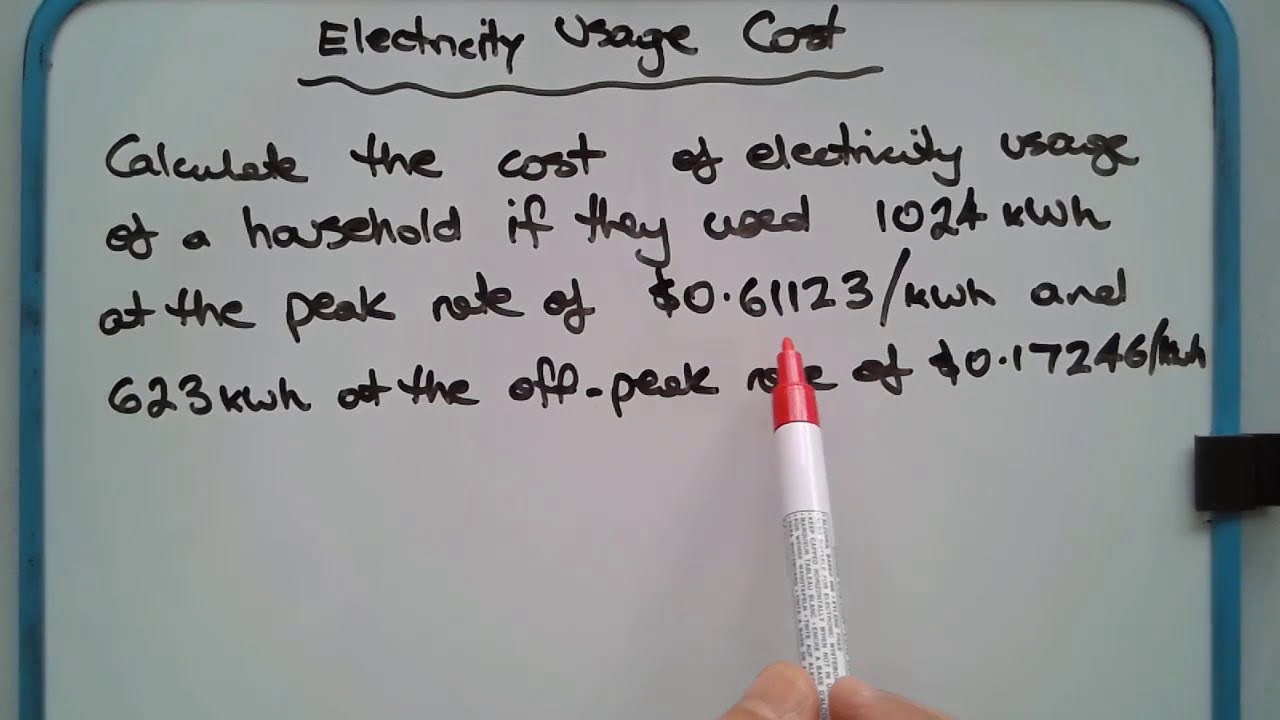 Electricity Usage Cost
Calculate the cost of electricity usage
of a household if they used 1024 kWh
at the peak rate of $0.61123/kwh and
623 kwh at the off-peak rate of $0.17246/kwh